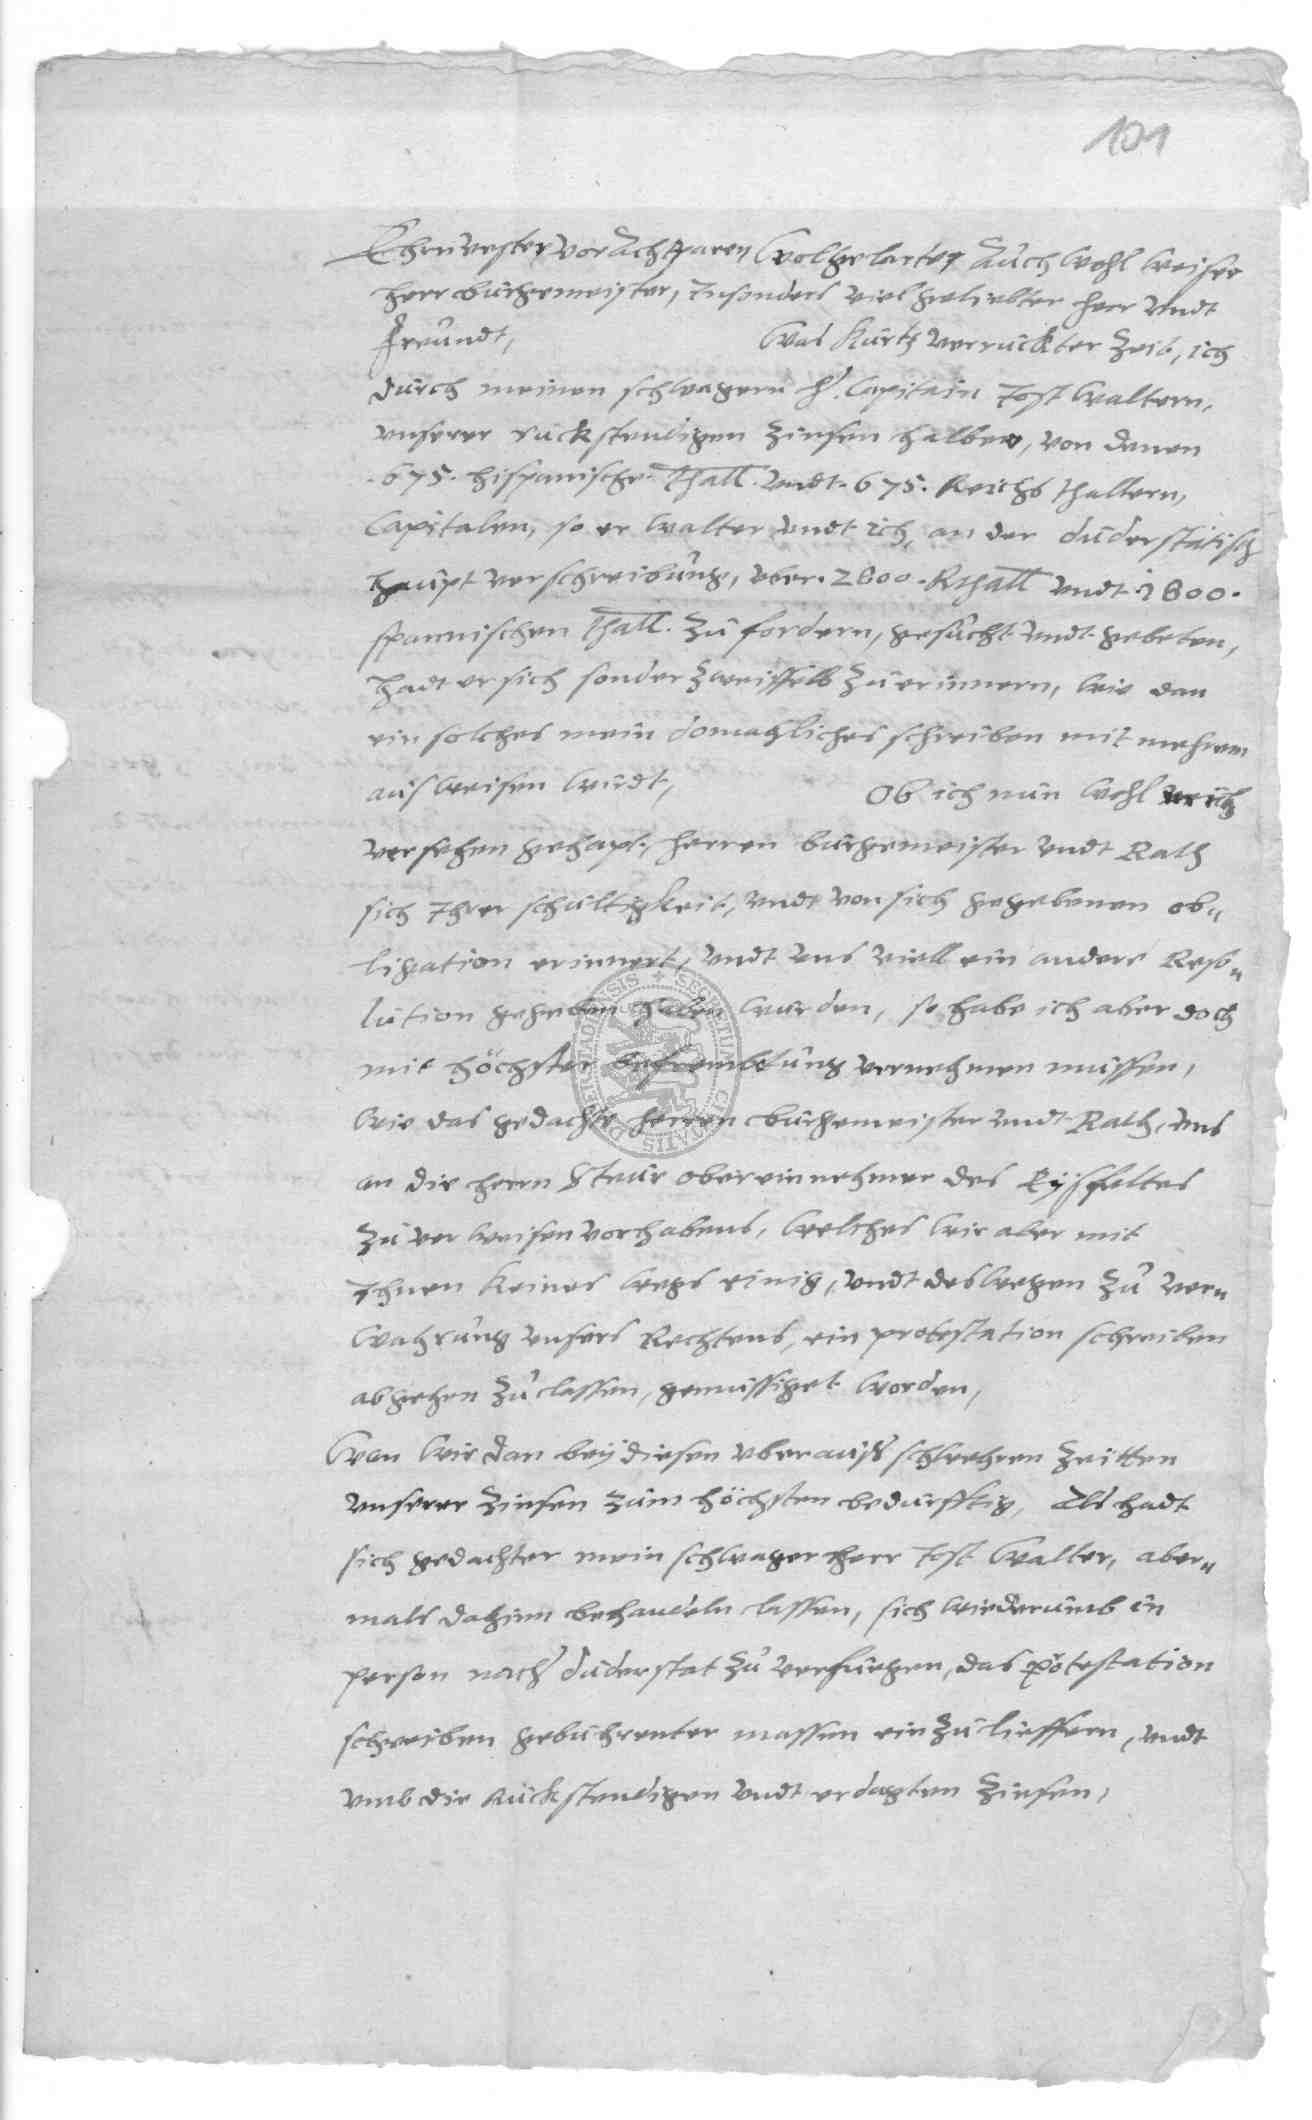 101
Ehrnvester, vor Achtparer, Wolgelarter Auch Wohl Weiser
herr burgemeister, Insonders viel geliebter herr vndt
freundt,
Was kurtz verruckter Zeit, ich
durch meinen schwagern H. Capitain Jost Waltern,
vnserer ruckstendigen Zinsen halber, von denen
.675. hispanische. Thall. vndt .675. Reichs thallern,
Capitalen, so er Walter vndt ich, an der duderstatisch
haupt verschreibung, vber .2800. Rthall vndt 1800.
spannischen Thall. zu fordern, gesucht vndt gebeten,
hadt er sich sonder zweiffell zu erinnern, wie dan
ein solches mein domahliches schreiben mit mehrem
ausweisen wirdt,
Ob ich nun wohl mich
versehen gehapt, herren burgemeister vndt Rath
sich Ihrer schultigkeit, vndt von sich gegebenen ob„
ligation erinnert, vndt vns viell ein anders Reso„
lution gegeben haben wurden, so habe ich aber doch
mit höchster befrembdung vernehmen mussen,
wie das gedachte herren burgemeister vndt Rath, vns
an die herrn Steur obereinnehmer des Eysfeltes
zu verweisen vorhabens, welches wir aber mit
Ihnen keines wegs einig, vndt deswegen zu ver„
wahrung vnsers Rechtens, ein protestation schreiben
abgehen zu lassen, gemussiget worden,
Wan wir dan bey diesen vberauss schwehren Zeitten
vnserer Zinsen zum höchsten bedurfftig, Als hadt
sich gedachter mein schwager herr Jost Walter, aber„
mals dahinn behandeln lassen, sich wiederumb in
person nach duderstat zu verfuegen, das protestation
schreiben gebuhrenter massen ein zu lieffern, vndt
vmb die Ruckstendigen vndt erdagten Zinsen,
SECRETUM CIVITATIS DUDERSTADIENSIS